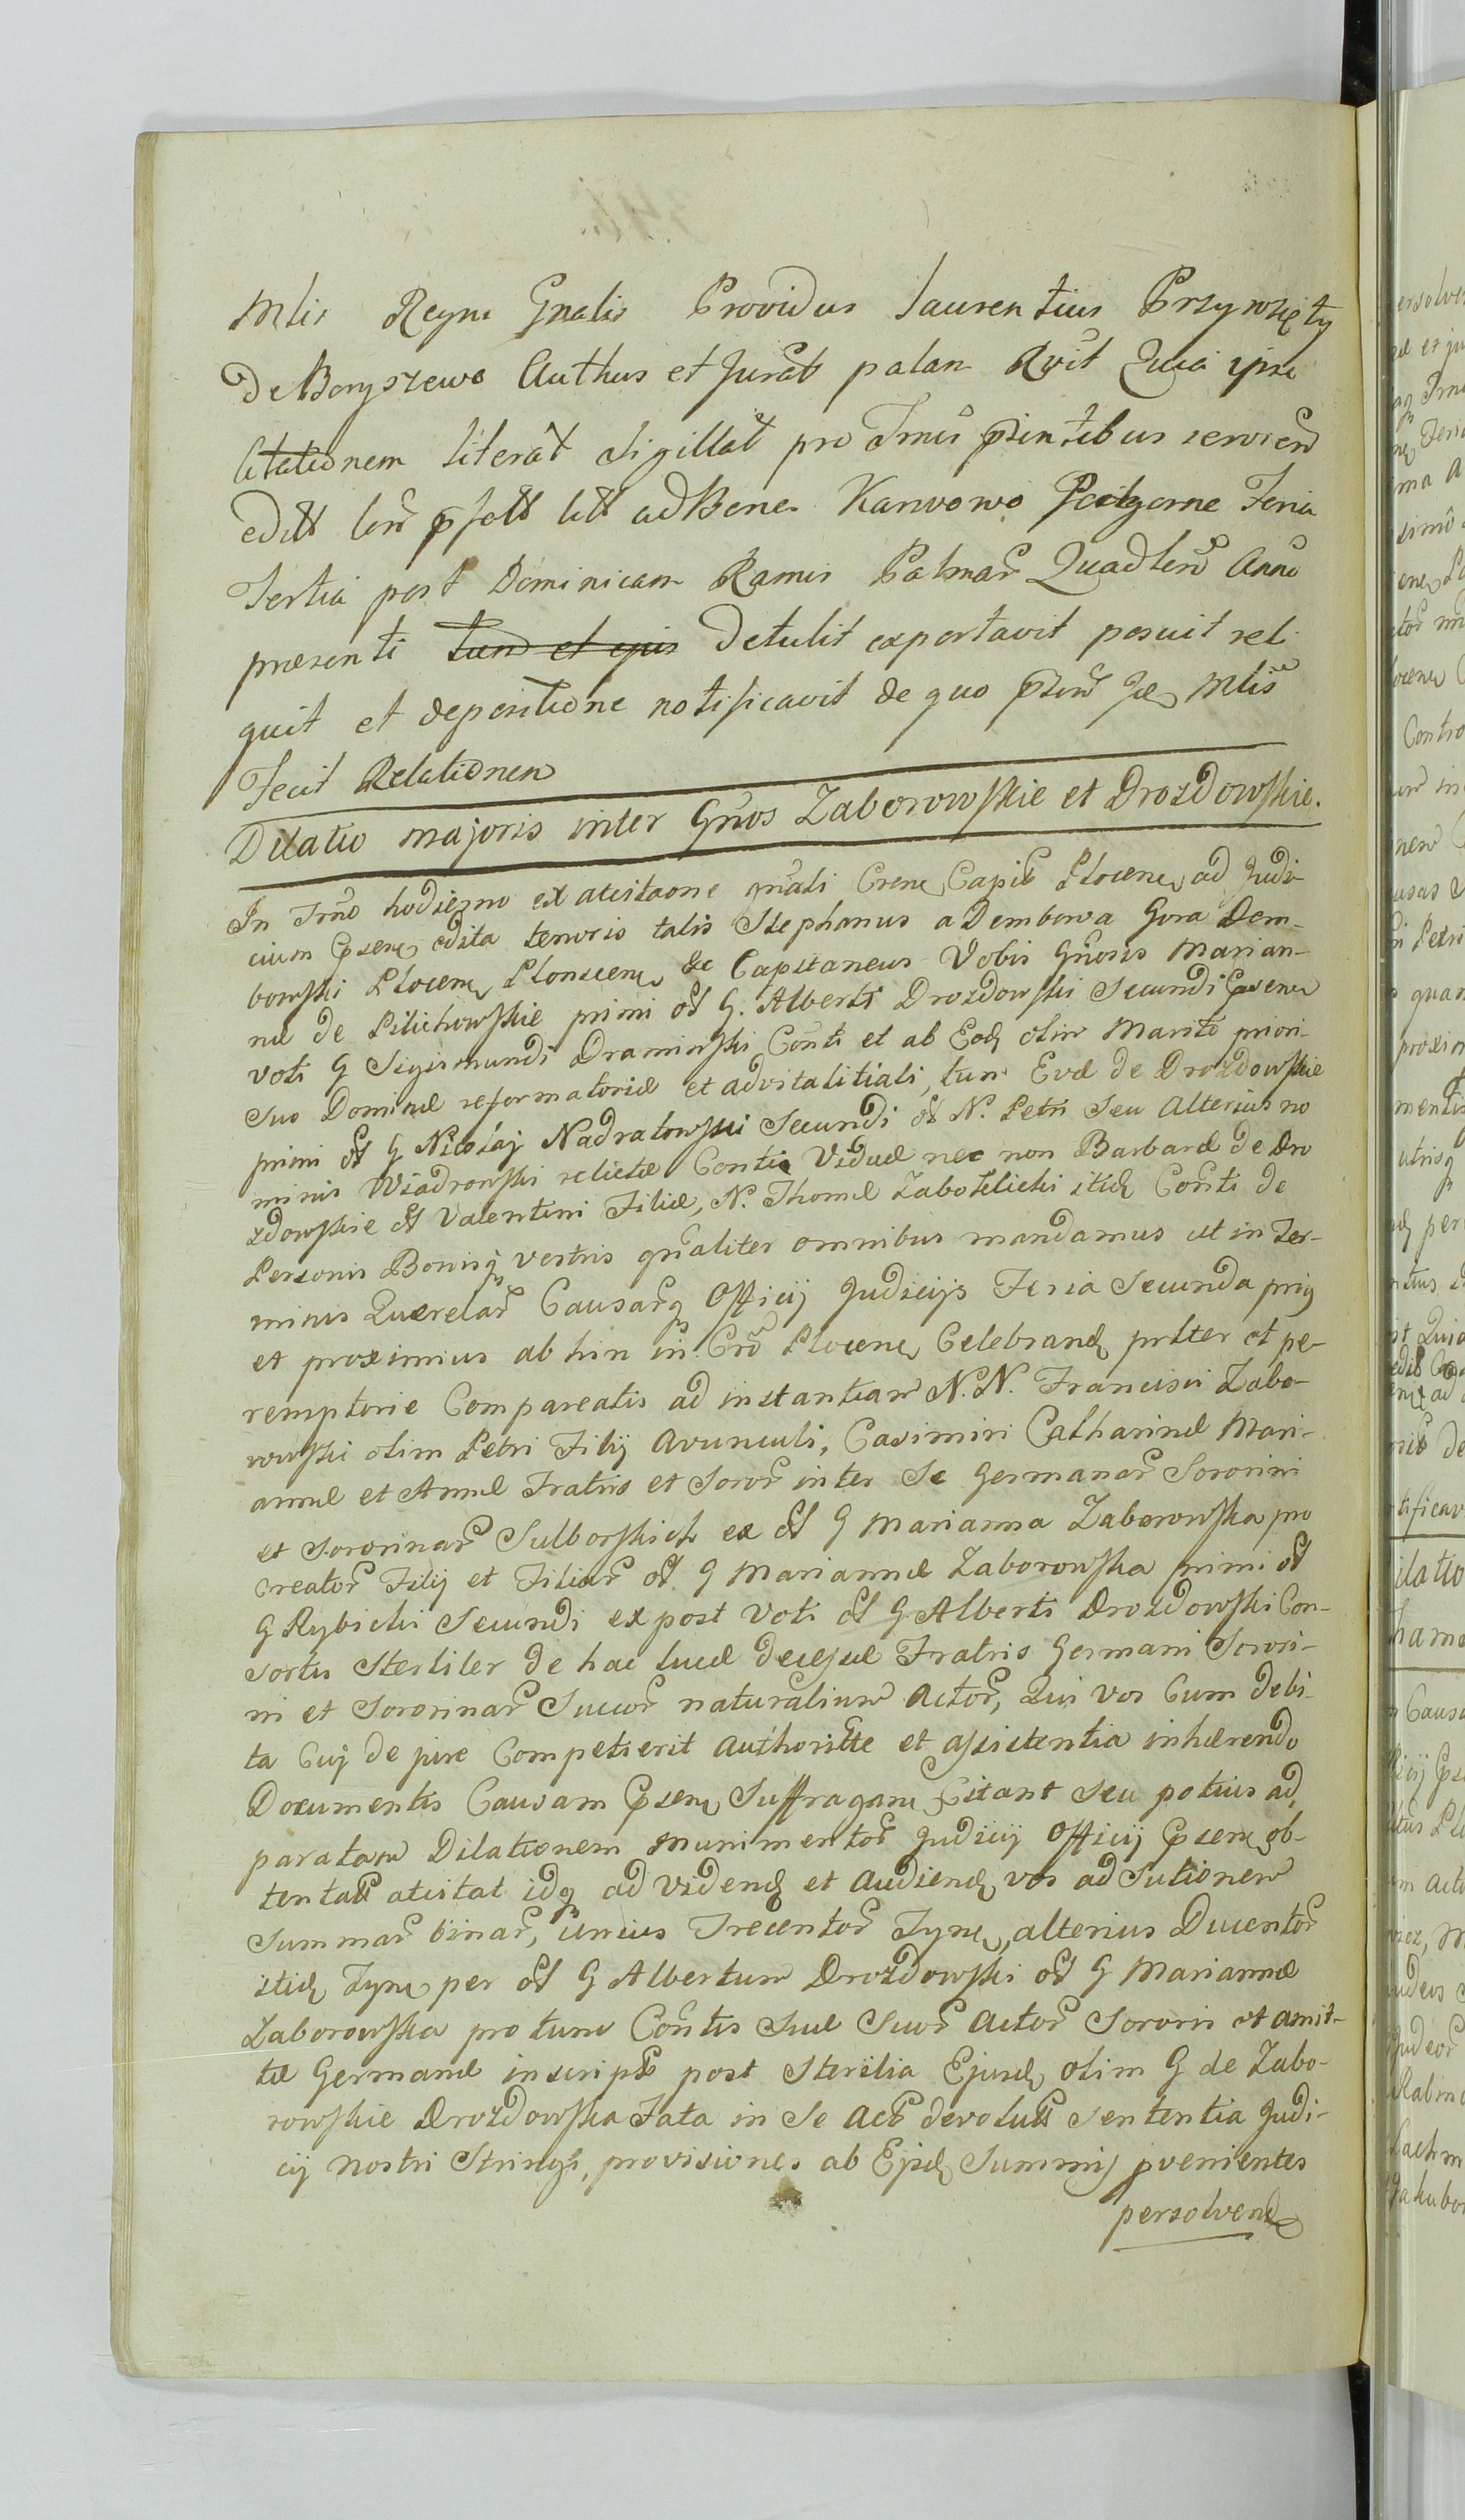 Mlis Regni Gnalis Providus Laurentius Przywzięty
de Boryszewo Authus et Jurat palam Rvit Quia ipse
Citationem literat Sigillat pro Tmis psentibus servien
editt ad Bona Karwowo Podgorne Feria
Tertia post Dominicam Ramis Palmar Quadlen Anno
præsenti tum et ejus detulit exportavit posuit reli
quit et depositione notificavit de quo psen Mlis
Fecit Relationem
Dilatio majoris inter Gnos Zaborowskie et Drozdowskie.
In Tmo hodierno ex atcitaone gnali Crene Capit Plocene ad Judi-
cium psens edita tenoris talis Stephanus a Dembowa Gora Dem-
bowski Plocen, Plonscen, &c Capitaneus Vobis Gnosis Marian-
næ de Pilichowskie primi od G. Alberti Drozdowski Secundi psene
voti G Sigismundi Dramiński Conti et ab Eod olim Marito priori
suo Dominæ reformatoriæ et advitalitiali, tum Evæ de Drozdowskie
primi od G Nicolaj Nadratowski Secundi od N. Petri Seu Alterius no
minis Wiadrowski relictæ Contis Viduæ nec non Barbaræ de Dro
zdowskie od Valentini Filiæ, N. Thomæ Zaboklichi itid Conti de
Personis Bonisq vestris gnaliter omnibus mandamus ut in Ter-
minis Querelar Causarq Officij Judicijs Feria Secunda prius
et proximius ab hin in Cro Plocene Celebrand prlter et pe-
remptorie Compareatis ad instantiam N.N. Francisci Zabo-
rowski olim Petri Filij Avunculi, Casimiri Catharinæ Mari-
annæ et Annæ Fratris et Soror inter Se Germanar Sororini
et Sororinar Sulborskich ex od G Marianna Zaborowska pro
creator Filij et Filiar od G Mariannæ Zaborowska primi od
G Rybicki Secundi expost Voti od G Alberti Drozdowski Con-
sortis Steriliter de hac lucæ decessæ Fratris Germani Sorori-
ni et Sororinar Succor naturalium Actor, Qui vos Cum debi-
ta Cuj de jure Competierit Authoritte et assistentia inhærendo
Documentis Causam psene Suffragane Citant seu potius ad
paratam Dilationem munimentor Judicij Officij psene ob-
tentam atcitat idq ad videnq et Audiend vos ad Solutionem
Summar binar, unius Trecentor Tyne, alterius Ducentor
itid Tyne per od G Albertum Drozdowski od G Mariannæ
Zaborowska pro tunc Contis Suæ Suor Actor Sororis et amit-
tæ Germanæ inscript post Sterilia Ejusd olim G de Zabo-
rowskie Drozdowska Fata in Se Act devolut sententia Judi-
cij nostri Stringi, provisiones ab Ejsd Summis pvenientes
persolvend